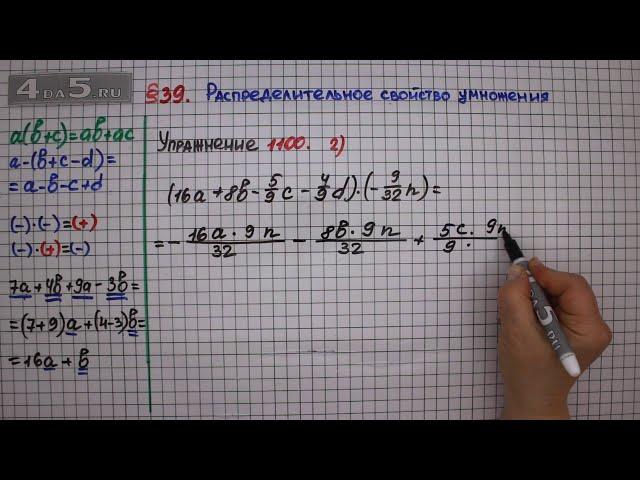 4DA5.RU
§39. Распределительное свойство умножения
a(b+c)=ab+ac
a-(b+c-d)=
=a-b-c+d
(-)·(-)=(+)
(-)·(+)=(-)
7a+4b+9a-3b=
=(7+9)a+(4-3)b=
=16a+b
Упражнение 1100. 2)
(16a+8b-5/9c-4/9d)·(-9/32n)=
=-16a·9n/32-8b·9n/32+5c·9n/9·